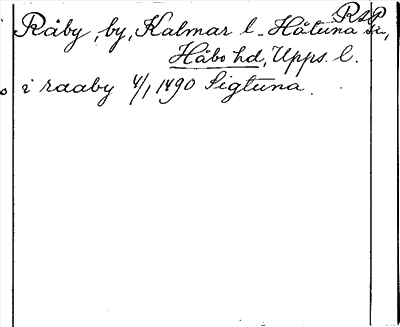 RAP
Råby, by, Kalmar l - Håtuna sn,
Håbo hd, Upps. l.
i raaby 4/1 1490 Sigtuna.